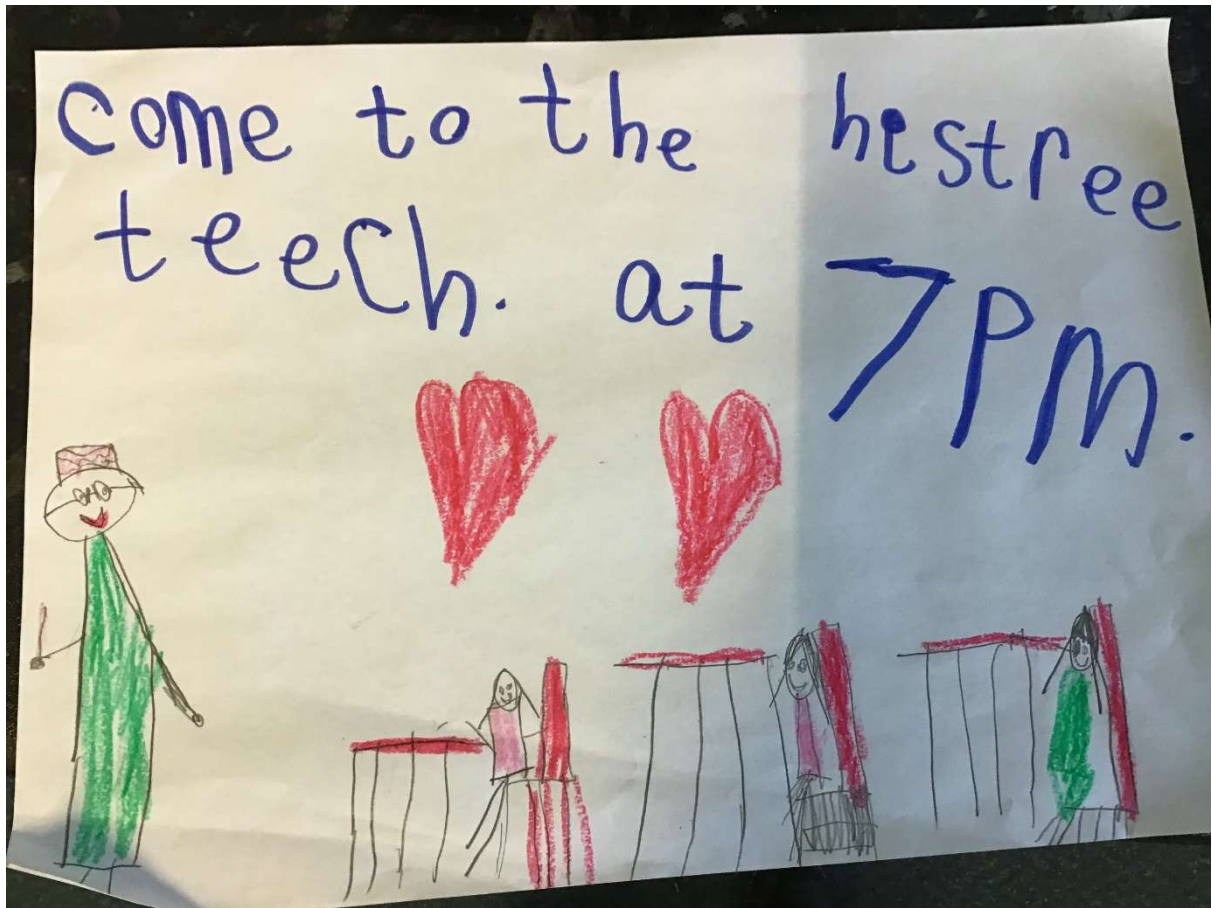 come to the hestree
teech. at 7PM.